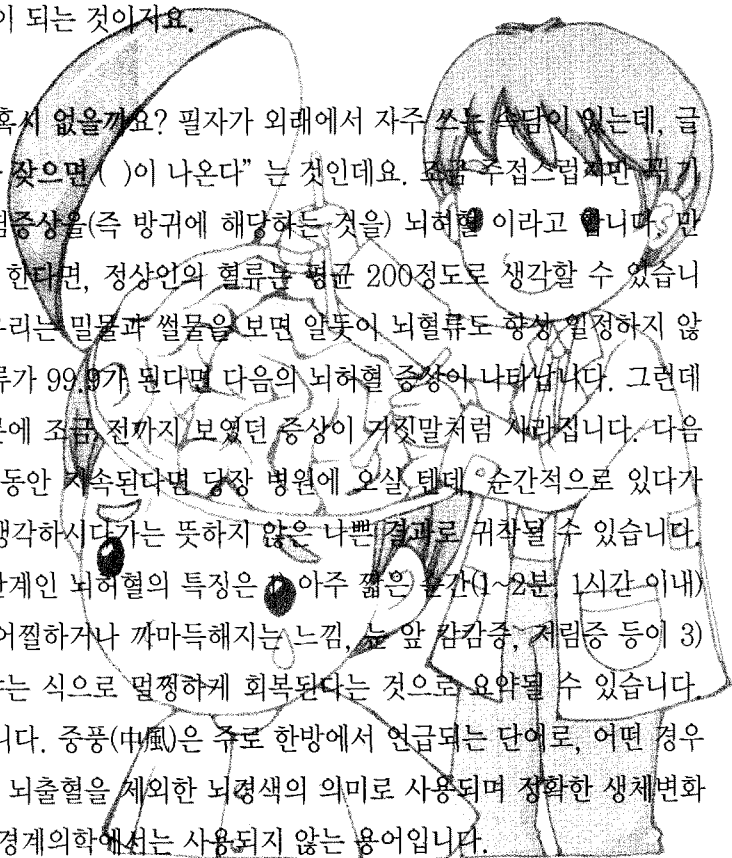 이 되는 것이지요.
혹시 없을까요? 필자가 외래에서 자주 쓰는 속담이 있는데, 글
잦으면 ( )이 나온다” 는 것인데요. 조금 주접스럽지만 꼭 기
험증상을(즉 방귀에 해당하는 것을) 뇌허혈 이라고 합니다. 만
한다면, 정상인의 혈류는 평균 200정도로 생각할 수 있습니
우리는 밀물과 썰물을 보면 알듯이 뇌혈류도 항상 일정하지 않
류가 99.9가 된다면 다음의 뇌허혈 증상이 나타납니다. 그런데
문에 조금 전까지 보였던 증상이 거짓말처럼 사라집니다. 다음
동안 지속된다면 당장 병원에 오실 텐데, 순간적으로 있다가
생각하시다가는 뜻하지 않은 나쁜 결과로 귀착될 수 있습니다.
단계인 뇌허혈의 특징은 1) 아주 짧은 순간(1~2분, 1시간 이내)
어찔하거나 까마득해지는 느낌, 눈 앞 캄캄증, 저림증 등이 3)
는 식으로 멀쩡하게 회복된다는 것으로 요약될 수 있습니다.
니다. 중풍(中風)은 주로 한방에서 언급되는 단어로, 어떤 경우
뇌출혈을 제외한 뇌경색의 의미로 사용되며 정확한 생체변화
경계의학에서는 사용되지 않는 용어입니다.